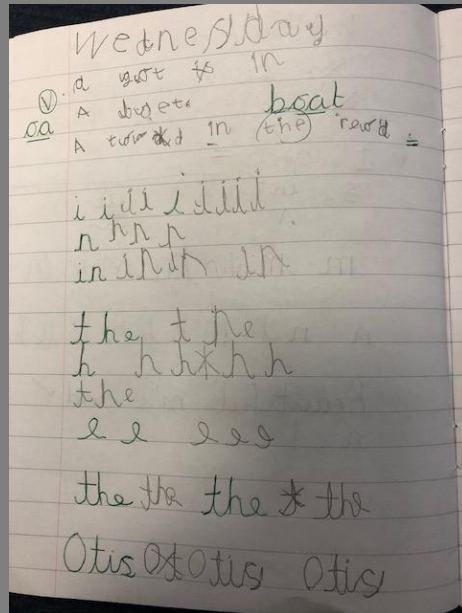 Wednesday
a gort is in
V. A buget boat
oa A tow d in the rewd =
i i i i i i i i i i
n h n n
in in in in
the t he
h h h * h h
the
e e e e e
the the the * the
Otis Ot Otis Otis